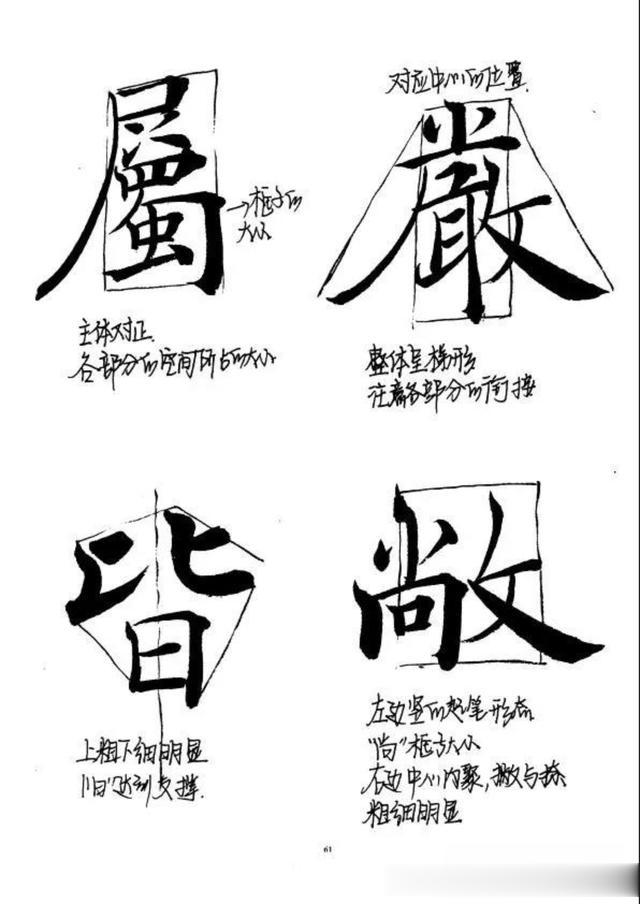 屬
→框子的
大小
主体对正
各部分的空间所占的大小
对应中心的位置
嚴
整体呈梯形
注意各部分的衔接
皆
上粗下细明显
"日"达到支撑
敞
左边竖的起笔形态
"尚"框子大小
右边中心内聚,撇与捺
粗细明显
61